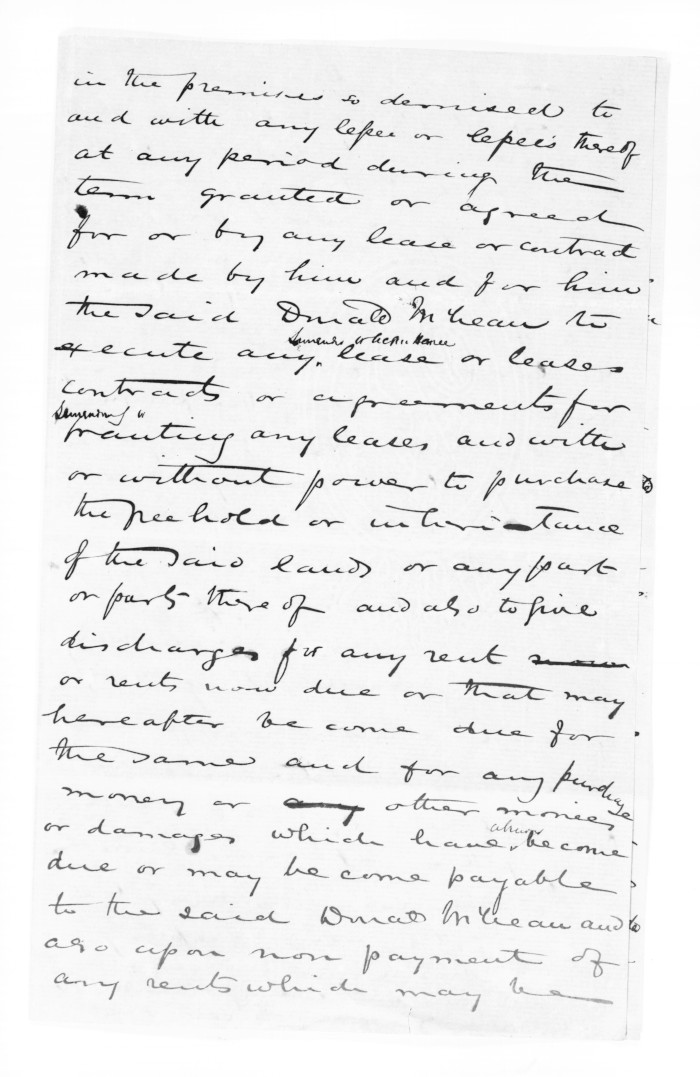 in the premises so demised to
and with any lessee or lessees thereof
at any period during the
term granted or agreed
for or by any lease or contract
made by him and for him
the said Donald McLean to
Surrender or
execute any lease or leases
contracts or agreements for
Surrendering or
granting any leases and with
or without power to purchase
the freehold or inheritance
of the said lands or any part
or parts thereof and also to give
discharges for any rent now
or rents now due or that may
hereafter become due for
the same and for any purchase
money or any other monies
or damages which have become
due or may become payable
to the said Donald McLean and
also upon non payment of
any rents which may be